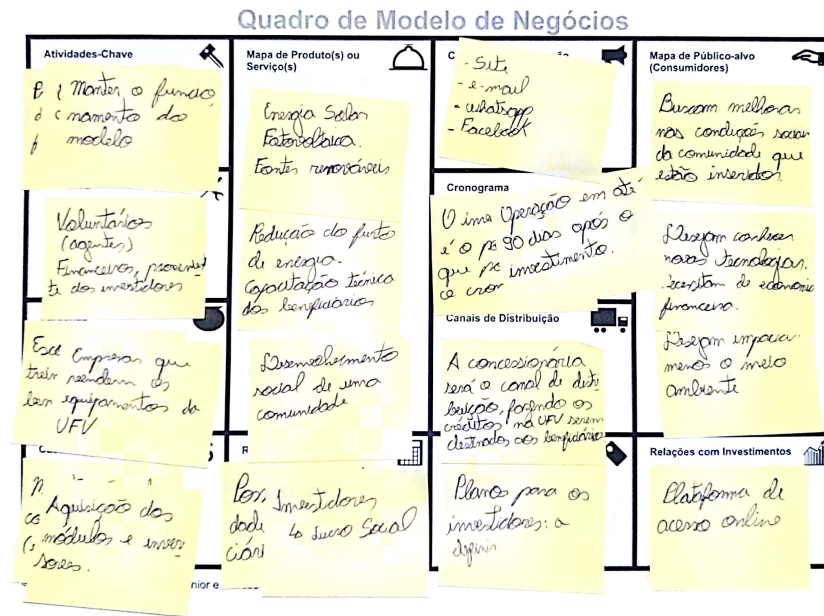 Quadro de Modelo de Negócios
Atividades-Chave
Manter o funcio
namento do
modelo
Voluntários
(agentes)
Financeiros, provenien
te dos investidores
Empresas que
vendem os
equipamentos da
UFV
Aquisição dos
módulos e inver
sores.
Mapa de Produto(s) ou
Serviço(s)
Energia Solar
Fotovoltaica.
Fontes renováveis
Redução do furto
de energia.
Capacitação técnica
dos beneficiários
Desenvolvimento
social de uma
comunidade
Investidores
↳ Lucro Social
- Site
- e-mail
- whatsapp
- Facebook
Cronograma
Operação em até
90 dias após o
investimento.
Canais de Distribuição
A concessionária
será o canal de distri
buição, fazendo os
créditos na UFV serem
destinados aos beneficiários
Planos para os
investidores: a
definir
Mapa de Público-alvo
(Consumidores)
Buscam melhoras
nas condições sociais
da comunidade que
estão inseridos.
Desejam conhecer
novas tecnologias.
de economia
financeira.
Desejam impactar
menos o meio
ambiente
Relações com Investimentos
Plataforma de
acesso online
nior e